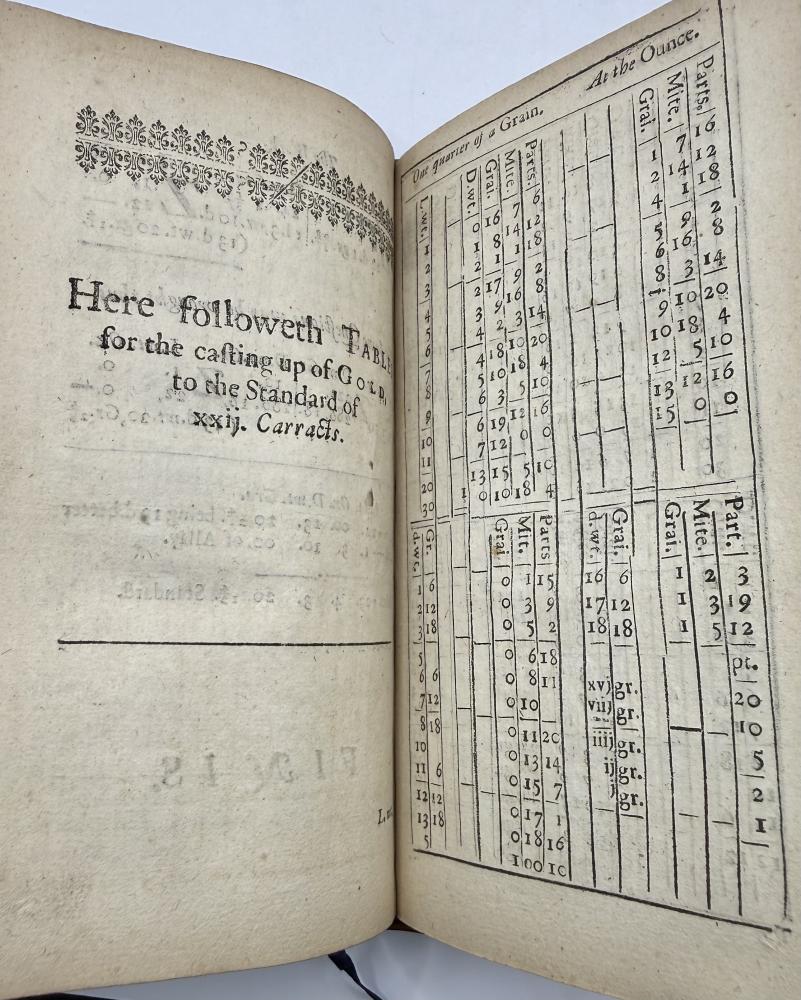 Here followeth TABLE
for the casting up of GOLD,
to the Standard of
xxij. Carracts.
One quarter of a Grain. At the Ounce.
L.wt. D.wt. Grai. Mite. Parts.
1 0 16 7 6
2 1 8 14 12
3 2 1 1 18
4 2 17 9 2
5 3 9 16 8
6 4 2 3 14
7 4 18 10 20
8 5 10 18 4
9 6 3 5 10
10 6 19 12 16
11 7 12 0 0
20 13 15 5 10
30 1 0 10 18 4
Grai. Mite. Parts.
1 7 6
2 14 12
4 1 18
5 9 2
6 16 8
8 3 14
9 10 20
10 18 4
12 5 10
13 12 16
15 0 0
d.wt. Gr. Grai Mit. Parts
1 6 0 1 15
2 12 0 3 9
3 18 0 5 2
5 0 6 18
6 6 0 8 11
7 12 0 10
8 18 0 11 20
10 0 13 14
11 6 0 15 7
12 12 0 17 1
13 18 0 18 16
5 1 00 10
d.wt. Grai. Grai. Mite. Part.
16 6 1 2 3
17 12 1 3 19
18 18 1 5 12
pt.
xvj gr. 20
viij gr. 10
iiij gr. 5
ij gr. 2
j gr. 1